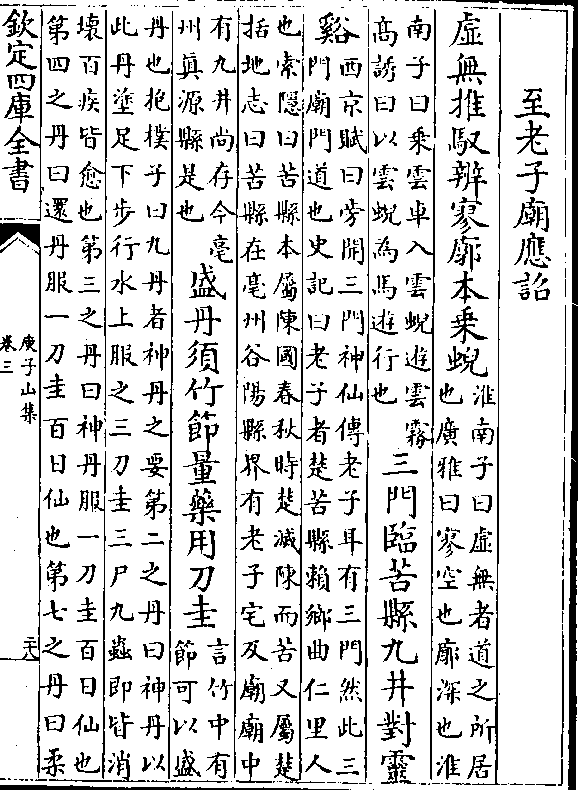 至老子廟應詔
虛無推馭辨寥廓本乘蜺
淮南子曰虛無者道之所居
也廣雅曰寥空也廓深也淮
南子曰乘雲車入雲蜺遊雲霧
高誘曰以雲蜺為馬遊行也
三門臨苦縣九井對靈
谿
西京賦曰旁開三門神仙傳老子耳有三門然此三
門廟門道也史記曰老子者楚苦縣賴鄉曲仁里人
也索隱曰苦縣本屬陳國春秋時楚滅陳而苦又屬楚
括地志曰苦縣在亳州谷陽縣界有老子宅及廟廟中
有九井尚存今亳
州真源縣是也
盛丹須竹節量藥用刀圭
言竹中有
節可以盛
丹也抱樸子曰九丹者神丹之要第二之丹曰神丹以
此丹塗足下步行水上服之三刀圭三尸九蟲即皆消
壞百疾皆愈也第三之丹曰神丹服一刀圭百日仙也
第四之丹曰還丹服一刀圭百日仙也第七之丹曰柔
欽定四庫全書
庾子山集
卷三